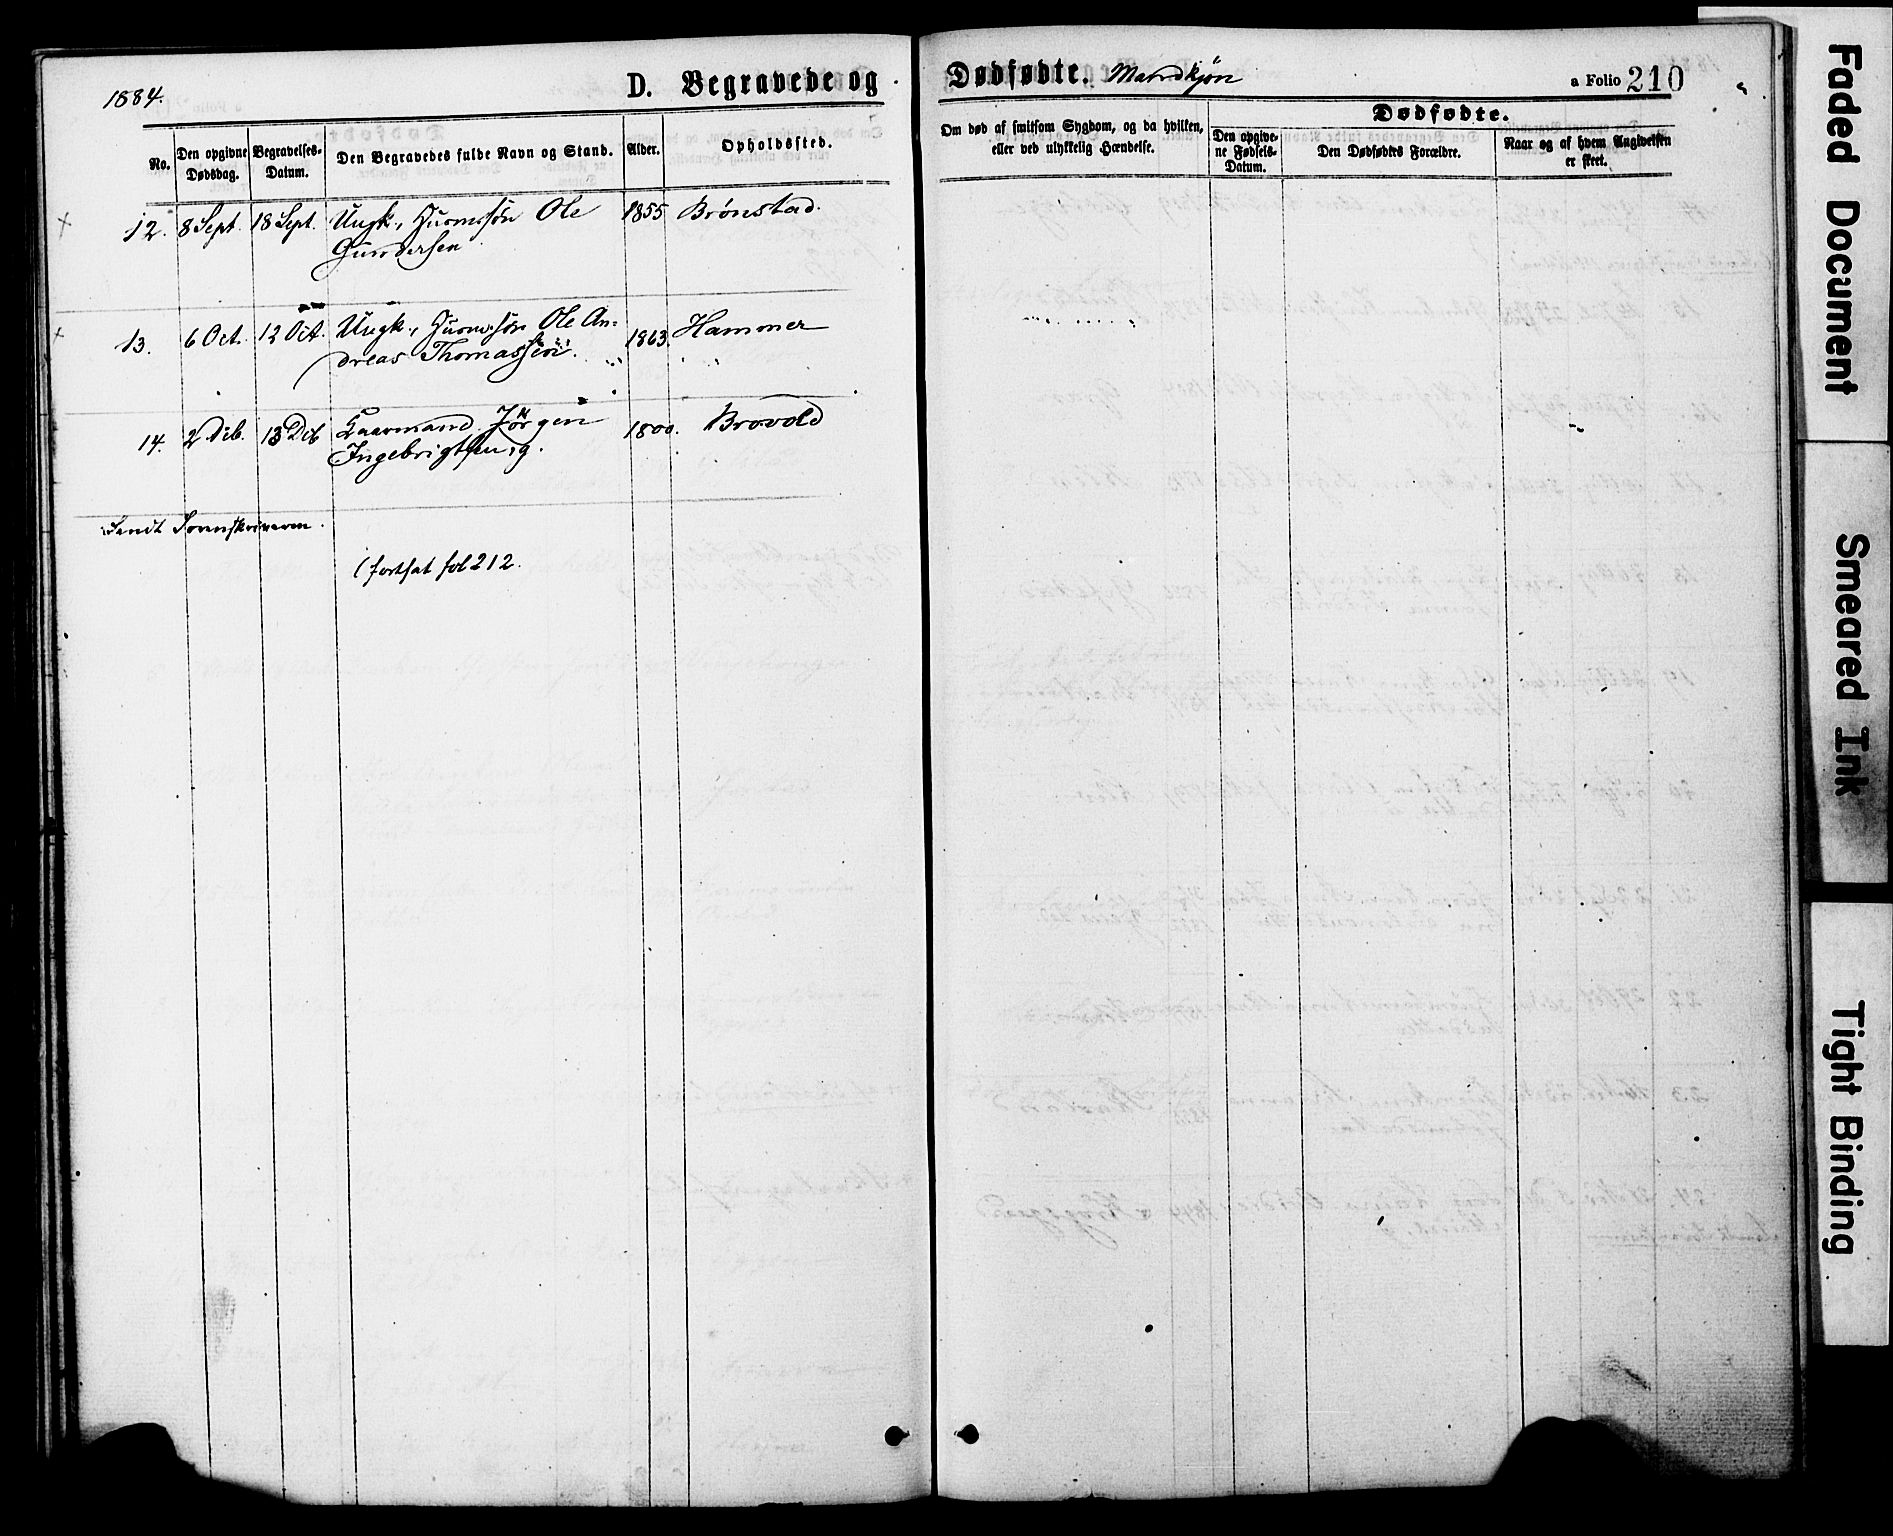 1884.
D. Begravede og Dødfødte. Mandkjøn
a Folio 210
No.
Den opgivne Dødsdag.
Begravelses-Datum.
Den Begravedes fulde Navn og Stand.
Alder.
Opholdssted.
Om død af smitsom Sygdom, og da hvilken, eller ved ulykkelig Hændelse.
Dødfødte.
Den opgivene Fødsels-Datum.
Den Dødfødtes Forældre.
Naar og af hvem Angivelsen er skeet.
12. 8 Sept. 18 Sept. Ungk., Huusm.søn Ole 1855 Brønstad.
Gundersen
13. 6 Oct. 12 Oct. Ungk., Ole An= 1863. Hammer
dreas Thomassen.
14. 2 Deb. 13 Deb Gaarmand Jørgen 1800. Brovold
Ingebrigtsen, g.
Sendt Sorenskriveren.
(fortsat fol 212.
Faded Document
Smeared Ink
Tight Binding